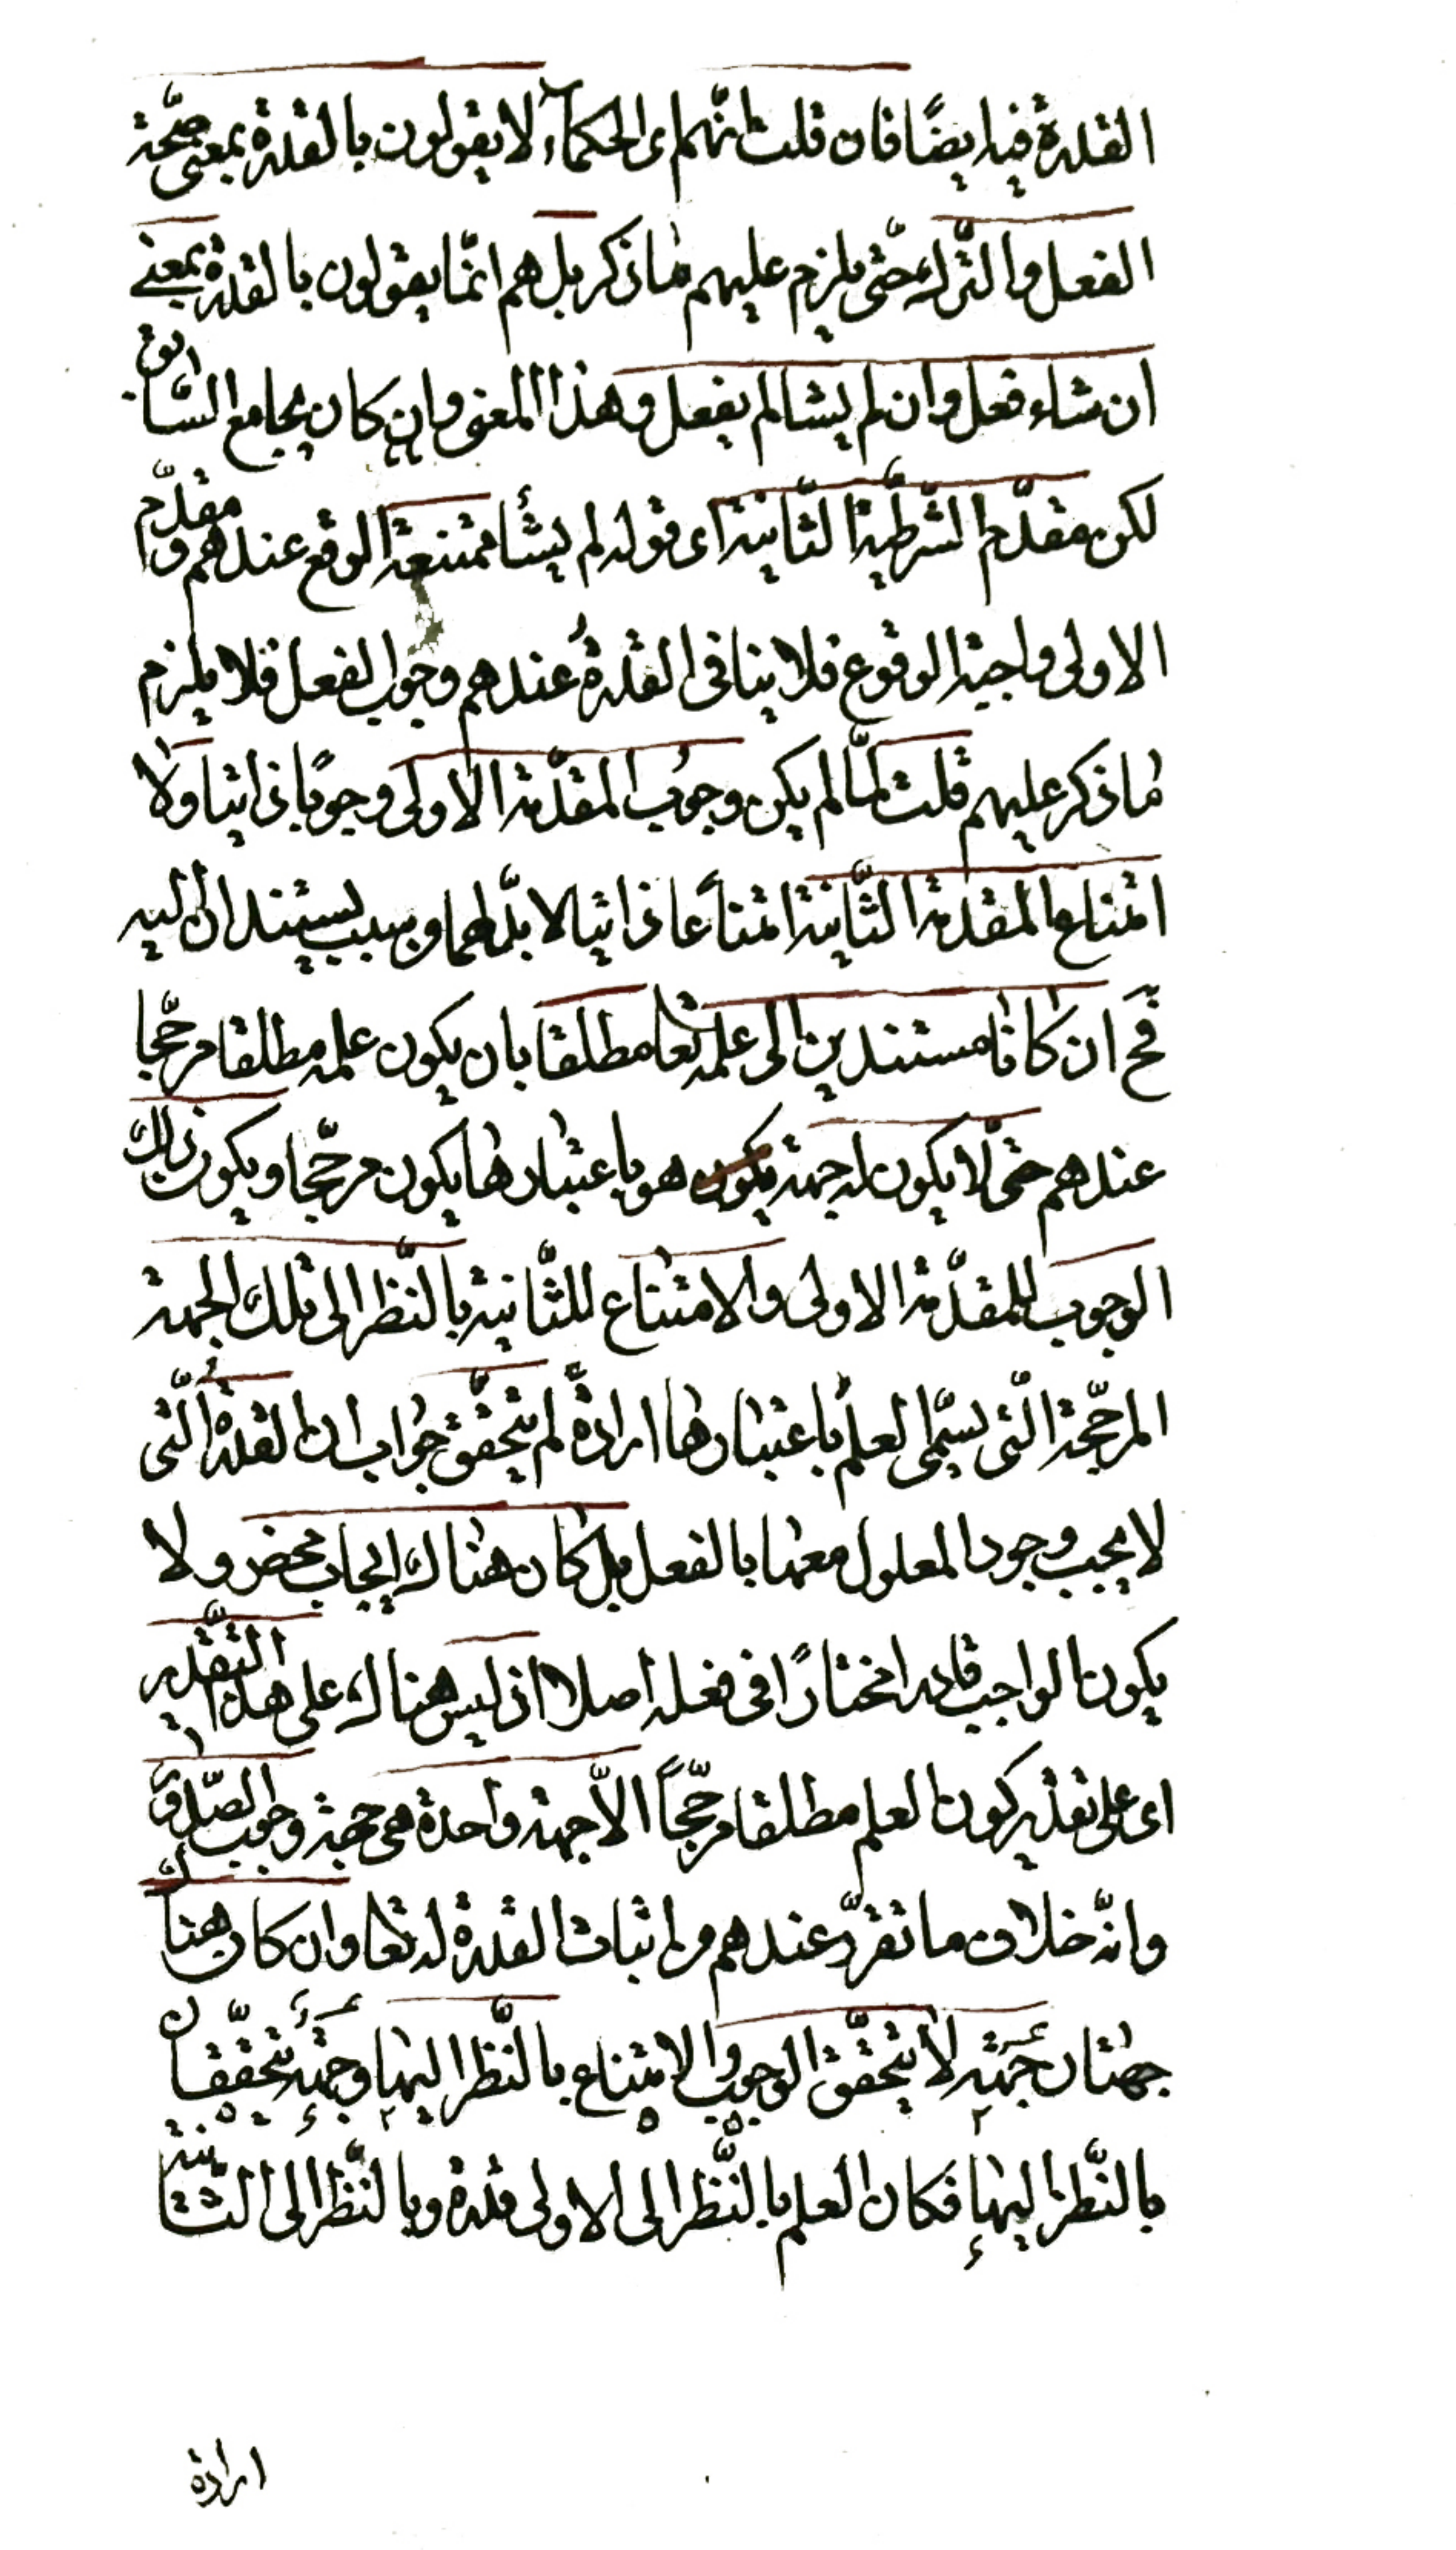 القدرة فيه ايضًا فان قلت انّهم اى الحكمآء لا يقولون بالقدرة بمعنى صحّة
الفعل والتّرك حتّى يلزم عليهم ما ذكر بل هم انّما يقولون بالقدرة بمعنى
ان شاء فعل وان لم يشا لم يفعل وهذا المعنى وان كان يجامع السّابق
لكن مقدّم الشّرطيّة الثّانية اى قوله لم يشأ ممتنعة الوقع عندهم ومقدّم
الاولى واجبة الوقوع فلا ينافى القدرةُ عندهم وجوب الفعل فلا يلزم
ما ذكر عليهم قلت لمّا لم يكن وجوب المقدّمة الاولى وجوبًا ذاتيا ولا
امتناع المقدمة الثّانية امتناعًا ذاتيا لا بدّ لهما من سبب يستندان اليه
فح ان كانا مستندين الى علمه تعا مطلقا بان يكون علمه مطلقا مرجّحا
عندهم حتّى لا يكون له جهة هو باعتبارها يكون مرجّحا ويكون ذلك
الوجوب للمقدّمة الاولى والامتناع للثّانية بالنّظر الى تلك الجهة
المرجّحة الّتى يسمّى العلمُ باعتبارها ارادةً لم يتحقّق جواب ان القدرةُ الّتى
لا يجب وجود المعلول معها بالفعل بل كان هناك ايجاب محض ولا
يكون الواجب قادرا مختارًا فى فعله اصلا اذ ليس هناك على هذا التّقدير
اى على تقدير كون العلم مطلقا مرجّحاً الّا جهة واحدة هى جهة وجوب الصّدق
وانّه خلاف ما تقرّر عندهم من اثبات القدرة له تعا وان كان هناك
جهتان جهة لا يتحقّق الوجوب والامتناع بالنّظر اليها وجهة يتحقّقان
بالنّظر اليها فكان العلم بالنّظر الى الاولى قدرة وبالنّظر الى الثّانية
ارادة